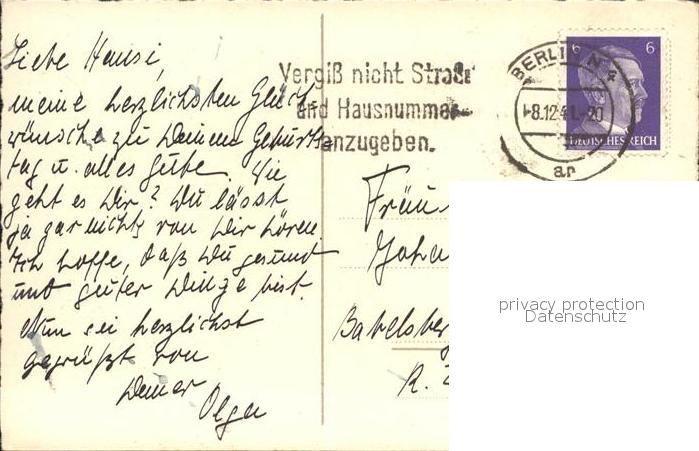 Liebe Hansi,
meine herzlichsten Glück-
wünsche zu Deinem Geburts-
tag u. alles Gute. Wie
geht es Dir? Du lässt
ja gar nichts von Dir hören.
Ich hoffe, daß Du gesund
und guter Dinge bist.
Nun sei herzlichst
gegrüßt von
Deiner
Olga
Vergiß nicht Straße
und Hausnummer
anzugeben.
BERLIN N
-8.12.41.-20
ar
6 6
DEUTSCHES REICH
Fräu
Joha
Babelsber
R.
privacy protection
Datenschutz